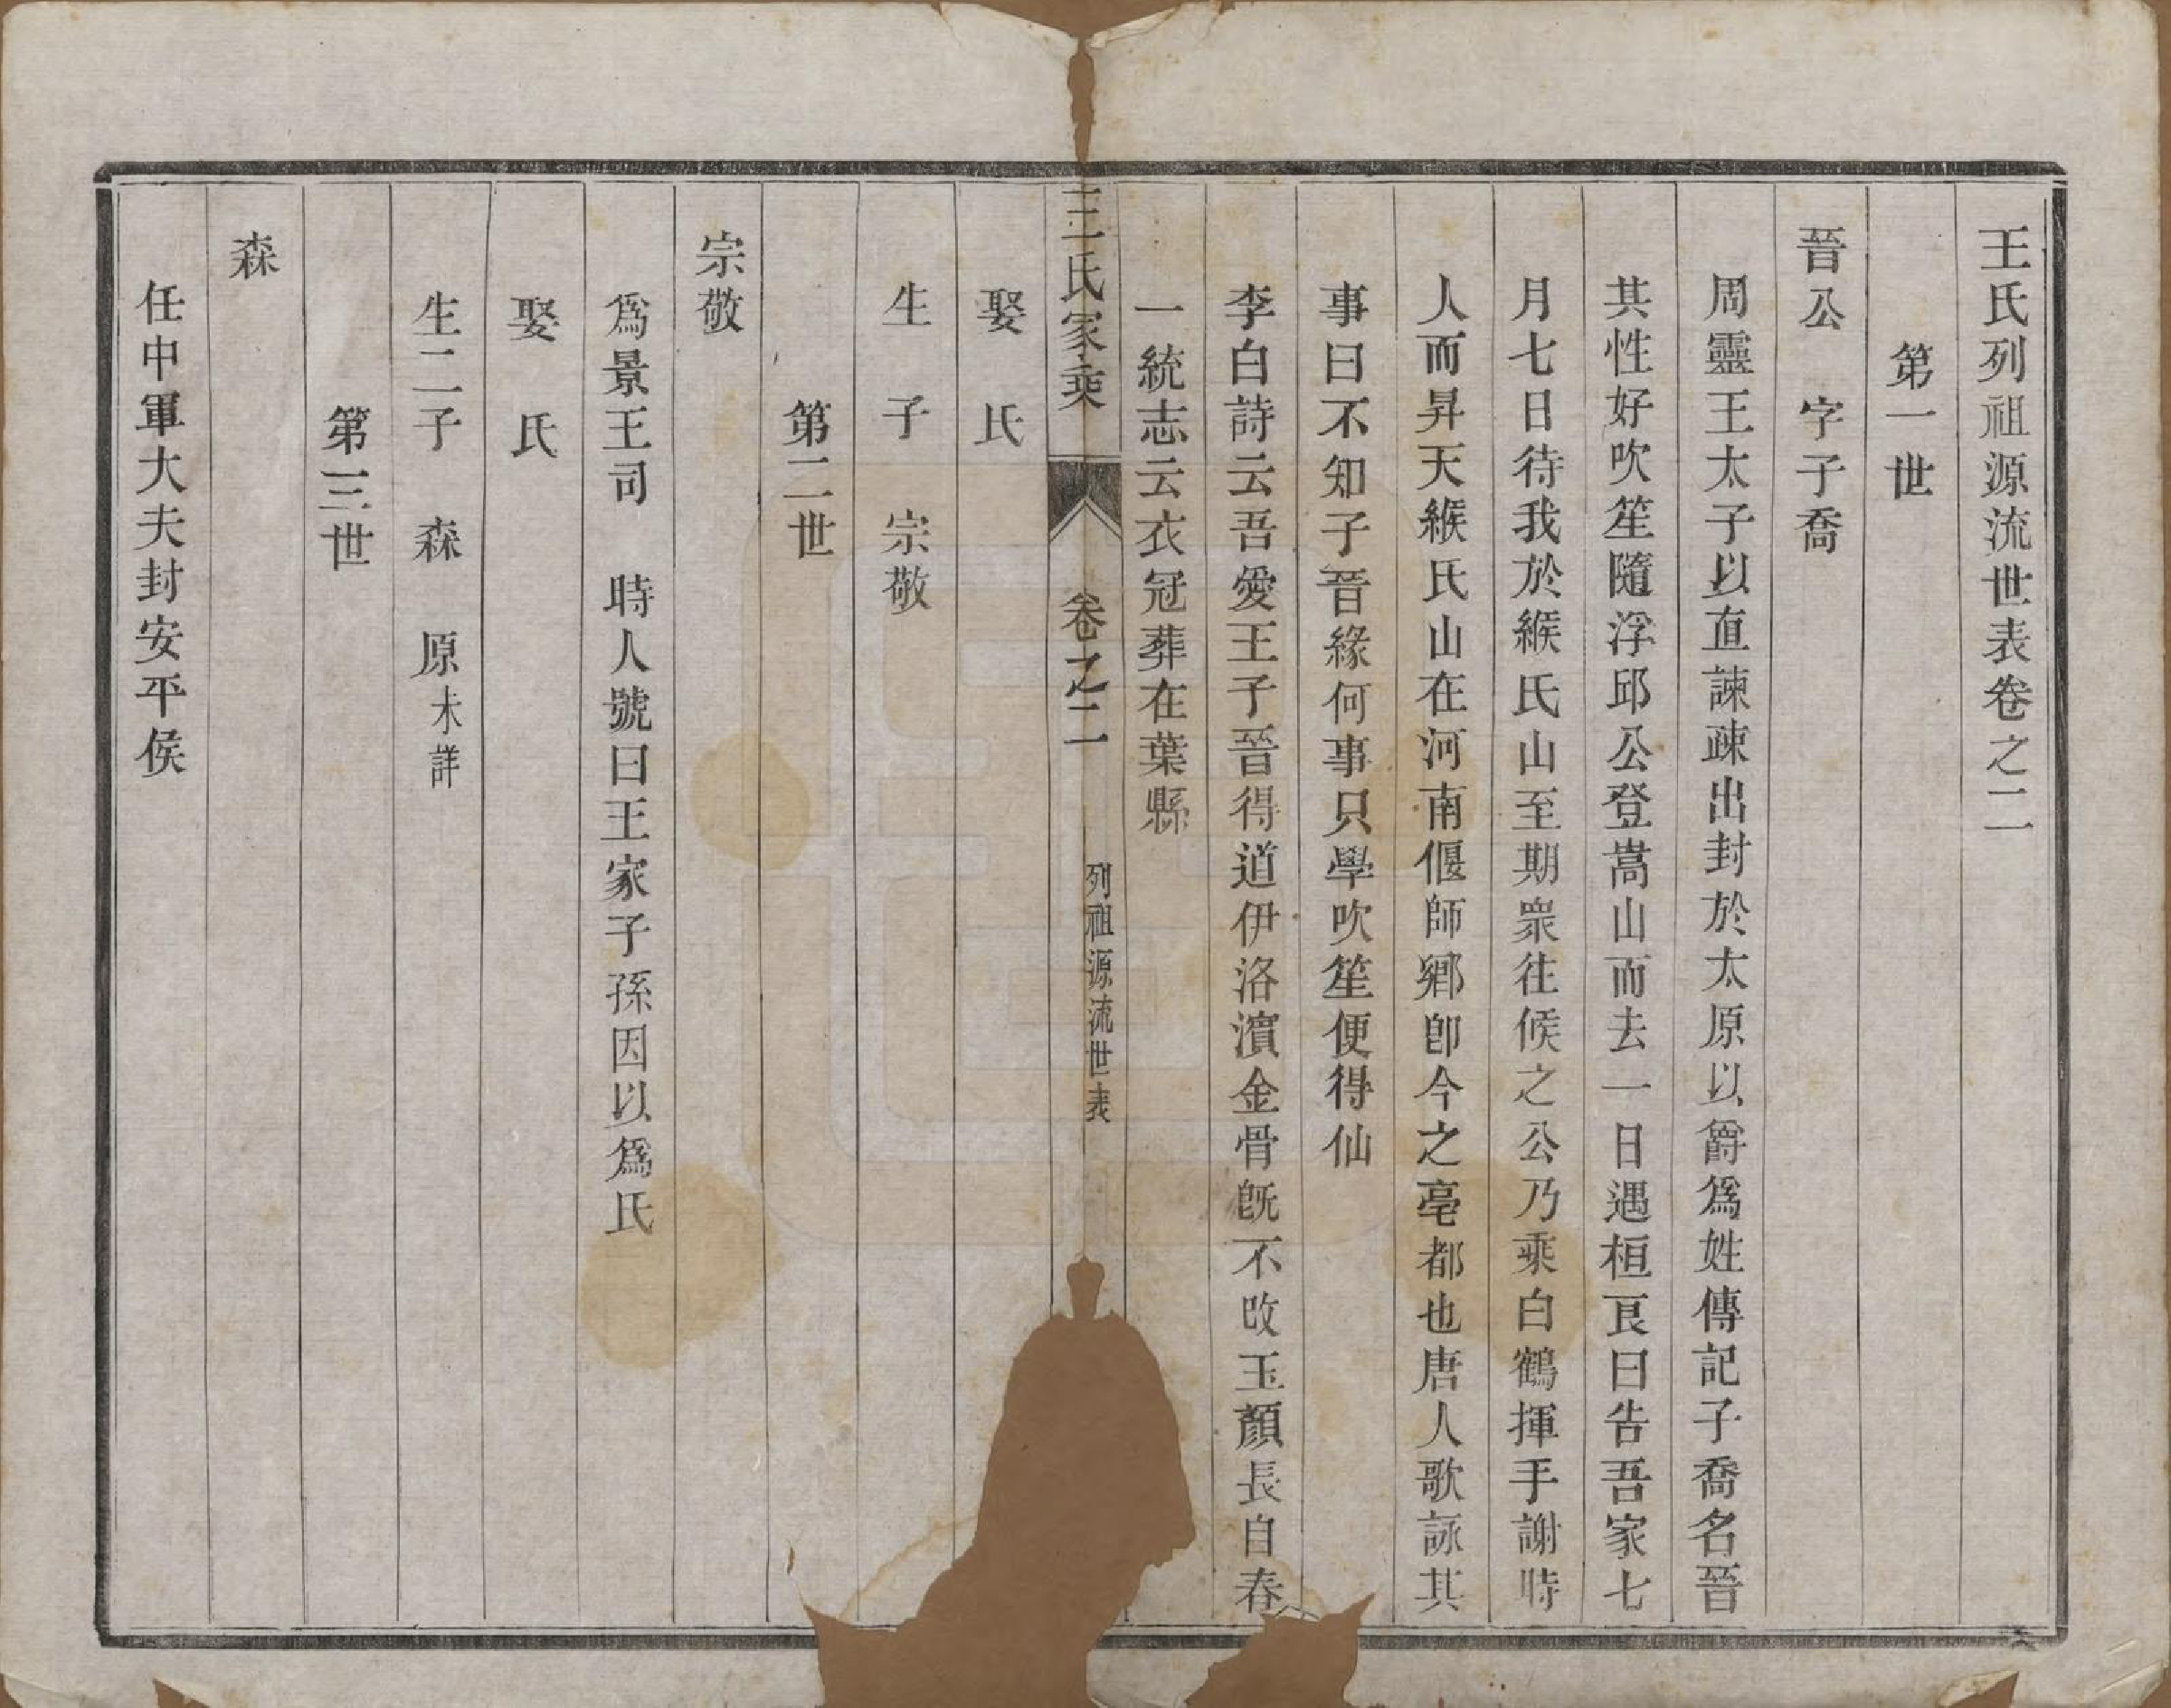 王氏列祖源流世表卷之二
第一世
晉公　字子喬
周靈王太子以直諫疎出封於太原以爵爲姓傳記子喬名晉
其性好吹笙隨浮邱公登嵩山而去一日遇桓艮曰告吾家七
月七日待我於緱氏山至期衆往候之公乃乘白鶴揮手謝時
人而昇天緱氏山在河南偃師鄉卽今之亳都也唐人歌詠其
事曰不知子晉緣何事只學吹笙便得仙
李白詩云吾愛王子晉得道伊洛濱金骨旣不改玉顏長自春
一統志云衣冠葬在葉縣
王氏家乘　卷之二　列祖源流世表
娶　氏
生　子　宗敬
第二世
宗敬
爲景王司　時人號曰王家子孫因以爲氏
娶　氏
生二子　森　原未詳
第三世
森
任中軍大夫封安平侯